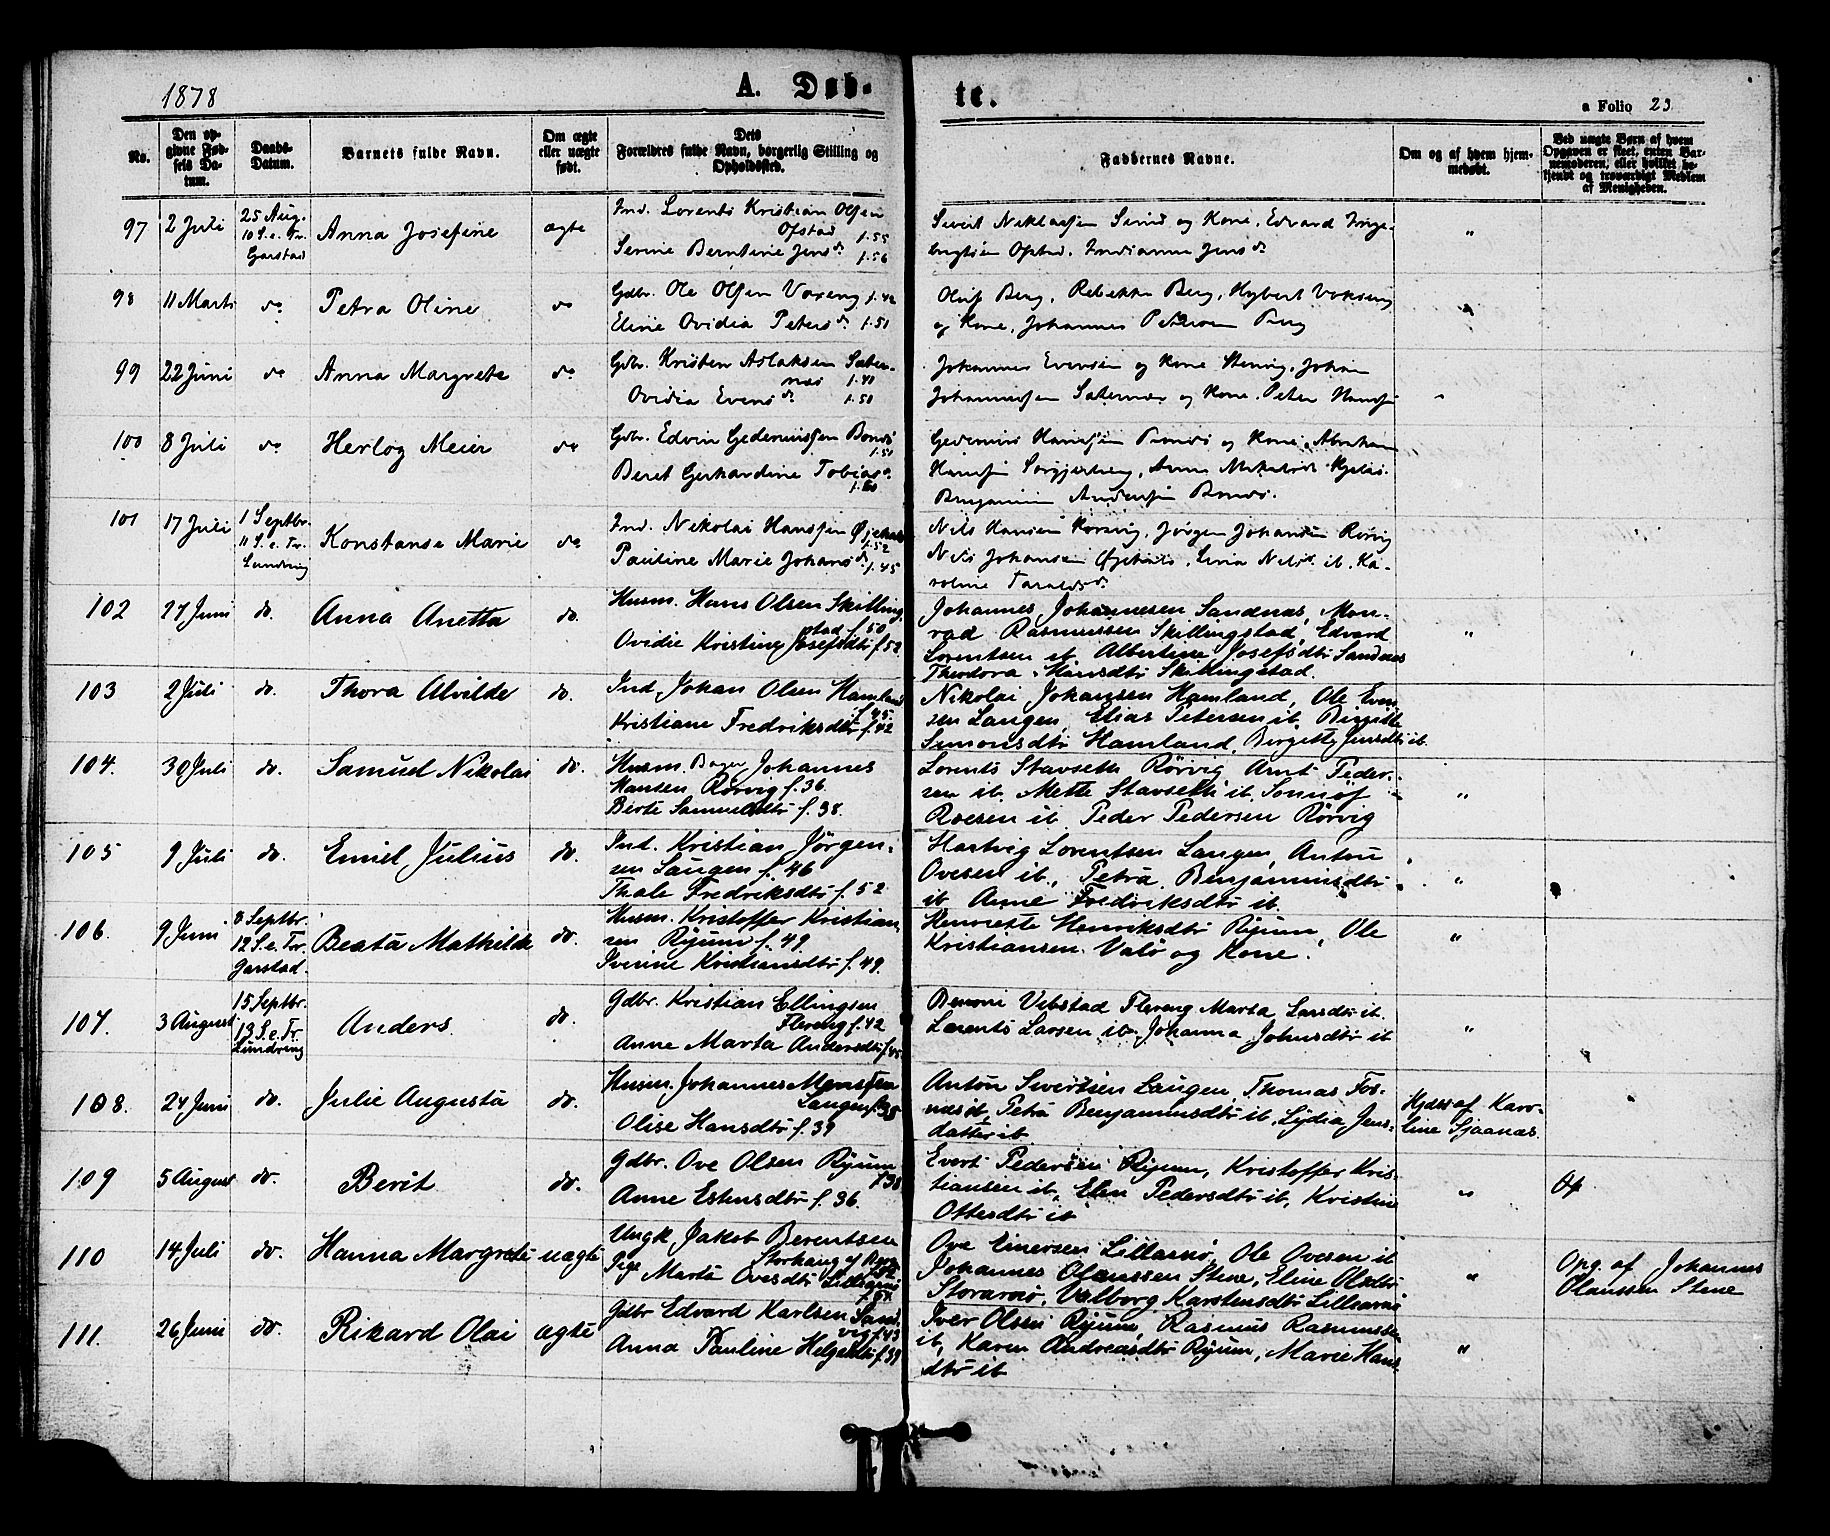 1878 A. Døb- te. a Folio 23.
No.
Den op-
givne Fød-
sels Da-
tum.
Daabs-
Datum.
Barnets fulde Navn.
Om ægte
eller uægte
født.
Dets
Forældres fulde Navn, borgerlig Stilling og
Opholdssted.
Faddernes Navne.
Om og af hvem hjem-
medøbt.
Ved uægte Børn af hvem
Opgaven er skeet, enten Bar-
nemoderen, eller hvilket be-
kjendt og troværdigt Medlem
af Menigheden.
97 2 Juli 25 Aug.
10 S. e. Tr.
Garstad
Anna Josefine ægte
Ind. Lorents Kristian Olsen
Ofstad f. 55
Serine Berntine Jensd. f. 56
Sivert Niklassen Sund og Kone, Edvard Inge-
brigtsen Ofstad, Indianna Jensd. "
98 11 Marts do Petra Oline do
Gdbr. Ole Olsen Voxeng f. 42
Eline Ovidia Petersd. f. 51
Oluf Berg, Rebekka Berg, Hybert Vokseng
og Kone, Johannes Petersen "
99 22 Juni do Anna Margrete do
Gdbr. Kristen Aslaksen Sæter-
næs f. 40
Ovidia Evensd. f. 50
Johannes Evensen og Kone, Johan
Johannessen Sæternæs og Kone. Peter Hansen "
100 8 Juli do Herlog Meier do
Gdbr. Edvin Gederiussen f. 51
Beret Gerhardine Tobiasd.
Hansen og Kone, Abraham
Hansen Anna
Benjamin Andersen
101 17 Juli 1 Septbr.
11 S. e. Tr.
Lundring
Konstanse Marie do
Ind. Nikolai Hanssen f. 52
Pauline Marie Johansd. f. 45
Nils Hansen Korsvig, Jørgen Johansen Rørvig
Nils Johansen Lina Nilsd. ib. Ka-
roline Taraldsd.
102 27 Juni do. Anna Anetta do.
Husm. Hans Olsen Skilling-
stad f. 50
Ovidie Kristine Josefsdtr f. 52
Johannes Johannesen Sandnæs, Mon-
rad Rasmussen Skillingstad, Edvard
Lorentsen ib. Albertine Josefsdtr Sandnæs
Theodora Hansdtr Skillingstad. "
103 2 Juli do. Thora Alvilde do.
Ind. Johan Olsen Hamland
f. 45.
Kristiane Fredriksdtr f. 42
Nikolai Johansen Hamland, Ole Even-
sen Laugen, Elias Petersen ib. Birgitte
Simonsdtr Hamland, Birgitte Jensdtr ib.
104. 30 Juli do. Samuel Nikolai do.
Husm. Bager Johannes
Hansen Rørvig f. 36.
Berte Samuelsdtr f. 38.
Lorents Stavseth Rørvig Arnt Peder-
sen ib. Mette Stavseth ib.
Roesen ib. Peder Pedersen Rørvig "
105 9 Juli do. Emiel Julius do.
Ind. Kristian Jørgen-
sen Laugen f. 46
Thale Fredriksdtr f. 52
Hartvig Lorentsen Laugen, Anton
Ovesen ib., Petra Benjaminsdtr
ib. Anne Fredriksdtr ib. "
106. 9 Juni 8 Septbr.
12 S. e. Tr.
Garstad.
Beata Mathilde do.
Husm. Kristoffer Kristian-
sen Ryum f. 49.
Iverine Kristiansdtr f. 49.
Henriette Henriksdtr Ryum, Ole
Kristiansen Valø og Kone. "
107. 3 August 15 Septbr.
13 S. e. Tr.
Lundring
Anders. do.
Gdbr. Kristian Ellingsen
Flereng f. 42
Anne Marta Andersdtr f. 45
Benoni Vibstad Flereng Marta Larsdtr ib.
Lorents Larsen ib. Johanna Johnsdtr ib "
108. 24 Juni do. Julie Augusta do.
Husm. Johannes Monssen
Laugen f. 35
Olise Hansdtr f. 39
Anton Sivertsen Laugen, Thomas Fos-
næs ib. Petra Benjaminsdtr ib. Lydia Jens-
datter ib
Hjdøbt af Karo-
line Sjaanæs.
109 5 August do. Berit do.
Gdbr. Ove Olsen Ryum
f. 38
Anne Estensdtr f. 36.
Evert Pedersen Ryum, Kristoffer Kris-
tiansen ib. Elen Pedersdtr ib. Kristine
Ottersdtr ib " Op
110 14 Juli do. Hanna Margrete uægte
Ungk. Jakob Berentsen
Storhaug
Pige Marta Ovesdtr Lillearnø
Ove Einersen Lillearnø, Ole Ovesen ib
Johannes Olaussen Stene, Eline Olsdtr
Storarnø, Valborg Karstensdtr Lillearnø "
Opg. af Johannes
Olaussen Stene
111. 26 Juni do. Rikard Olai ægte
Gdbr Edvard Karlsen Sand-
vig f. 43
Anna Pauline Helgesdtr f. 39
Iver Olsen Ryum, Rasmus Rasmussen
ib, Karen Andreasdtr Ryum, Marie Hans-
dtr ib "